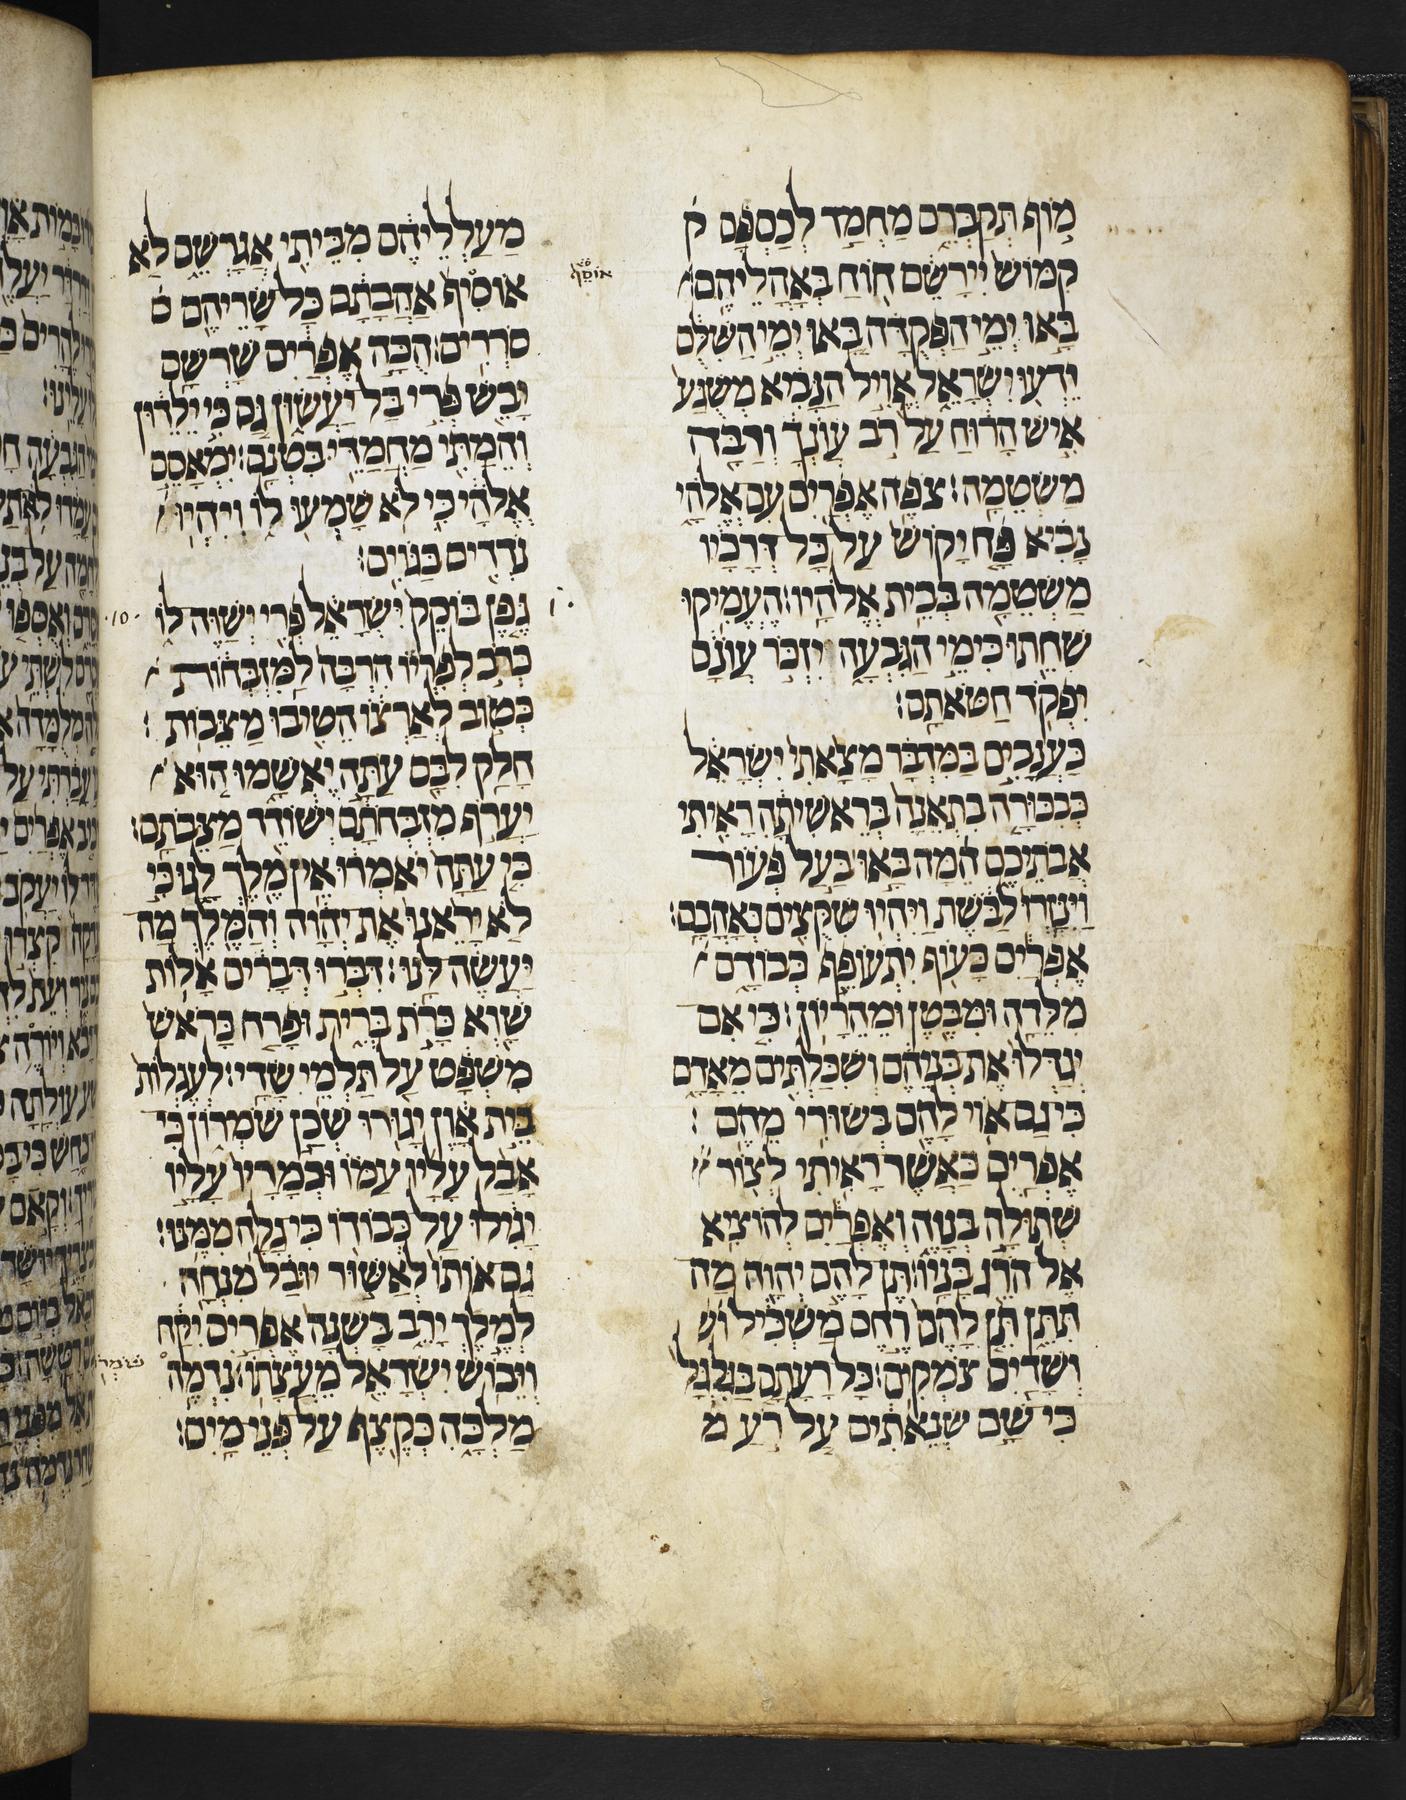 מֹוף תְּקַבְּרֵם מַחְמַד לְכַסְפָּם ק
קִמֹּושׂ יִירָשֵׁם חֹוחַ בְּאָהֳלֵיהֶם׃
בָּאוּ יְמֵי הַפְּקֻדָּה בָּאוּ יְמֵי הַשִּׁלֻּם
יֵדְעוּ יִשְׂרָאֵל אֱוִיל הַנָּבִיא מְשֻׁגָּע
אִישׁ הָרוּחַ עַל רֹב עֲוֹנְךָ וְרַבָּה
מַשְׂטֵמָה׃ צֹפֶה אֶפְרַיִם עִם אֱלֹהָי
נָבִיא פַּח יָקֹושׁ עַל כָּל דְּרָכָיו
מַשְׂטֵמָה בְּבֵית אֱלֹהָיו׃ הֶעְמִיקוּ
שִׁחֵתוּ כִּימֵי הַגִּבְעָה יִזְכֹּר עֲוֹנָם
יִפְקֹד חַטֹּאתָם׃
כַּעֲנָבִים בַּמִּדְבָּר מָצָאתִי יִשְׂרָאֵל
כְּבִכּוּרָה בִתְאֵנָה בְּרֵאשִׁיתָהּ רָאִיתִי
אֲבֹתֵיכֶם הֵמָּה בָּאוּ בַעַל פְּעֹור
וַיִּנָּזְרוּ לַבֹּשֶׁת וַיִּהְיוּ שִׁקֻּצִים כְּאָהֳבָם׃
אֶפְרַיִם כָּעֹוף יִתְעֹופֵף כְּבֹודָם
מִלֵּדָה וּמִבֶּטֶן וּמֵהֵרָיֹון׃ כִּי אִם
יְגַדְּלוּ אֶת בְּנֵיהֶם וְשִׁכַּלְתִּים מֵאָדָם
כִּי גַם אֹוי לָהֶם בְּשׂוּרִי מֵהֶם׃
אֶפְרַיִם כַּאֲשֶׁר רָאִיתִי לְצֹור
שְׁתוּלָה בְנָוֶה וְאֶפְרַיִם לְהֹוצִיא
אֶל הֹרֵג בָּנָיו׃ תֵּן לָהֶם יְהוָה מַה
תִּתֵּן תֵּן לָהֶם רֶחֶם מַשְׁכִּיל וְשׁ
וְשָׁדַיִם צֹמְקִים׃ כָּל רָעָתָם בַּגִּלְגָּל
כִּי שָׁם שְׂנֵאתִים עַל רֹעַ מ
מַעַלְלֵיהֶם מִבֵּיתִי אֲגָרְשֵׁם לֹא
אוֹסֵף
אֹוסִיף אַהֲבָתָם כָּל שָׂרֵיהֶם ס
סֹרְרִים׃ הֻכָּה אֶפְרַיִם שָׁרְשָׁם
יָבֵשׁ פְּרִי בַל יַעֲשׂוּן גַּם כִּי יֵלֵדוּן
וְהֵמַתִּי מַחֲמַדֵּי בִטְנָם׃ יִמְאָסֵם
אֱלֹהַי כִּי לֹא שָׁמְעוּ לֹו וְיִהְיוּ
נֹדְדִים בַּגֹּויִם׃
·10· גֶּפֶן בֹּוקֵק יִשְׂרָאֵל פְּרִי יְשַׁוֶּה לֹּו
כְּרֹב לְפִרְיֹו הִרְבָּה לַמִּזְבְּחֹות
כְּטֹוב לְאַרְצֹו הֵטִיבוּ מַצֵּבֹות׃
חָלַק לִבָּם עַתָּה יֶאְשָׁמוּ הוּא
יַעֲרֹף מִזְבְּחֹתָם יְשֹׁודֵד מַצֵּבֹתָם׃
כִּי עַתָּה יֹאמְרוּ אֵין מֶלֶךְ לָנוּ כִּי
לֹא יָרֵאנוּ אֶת יְהוָה וְהַמֶּלֶךְ מַה
יַּעֲשֶׂה לָּנוּ׃ דִּבְּרוּ דְבָרִים אָלֹות
שָׁוְא כָּרֹת בְּרִית וּפָרַח כָּרֹאשׁ
מִשְׁפָּט עַל תַּלְמֵי שָׂדָי׃ לְעֶגְלֹות
בֵּית אָוֶן יָגוּרוּ שְׁכַן שֹׁמְרֹון כִּי
אָבַל עָלָיו עַמֹּו וּכְמָרָיו עָלָיו
יָגִילוּ עַל כְּבֹודֹו כִּי גָלָה מִמֶּנּוּ׃
גַּם אֹותֹו לְאַשּׁוּר יוּבָל מִנְחָה
לְמֶלֶךְ יָרֵב בָּשְׁנָה אֶפְרַיִם יִקָּח
וְיֵבֹושׁ יִשְׂרָאֵל מֵעֲצָתֹו׃ נִדְמֶה
מַלְכָּהּ כְּקֶצֶף עַל פְּנֵי מָיִם׃